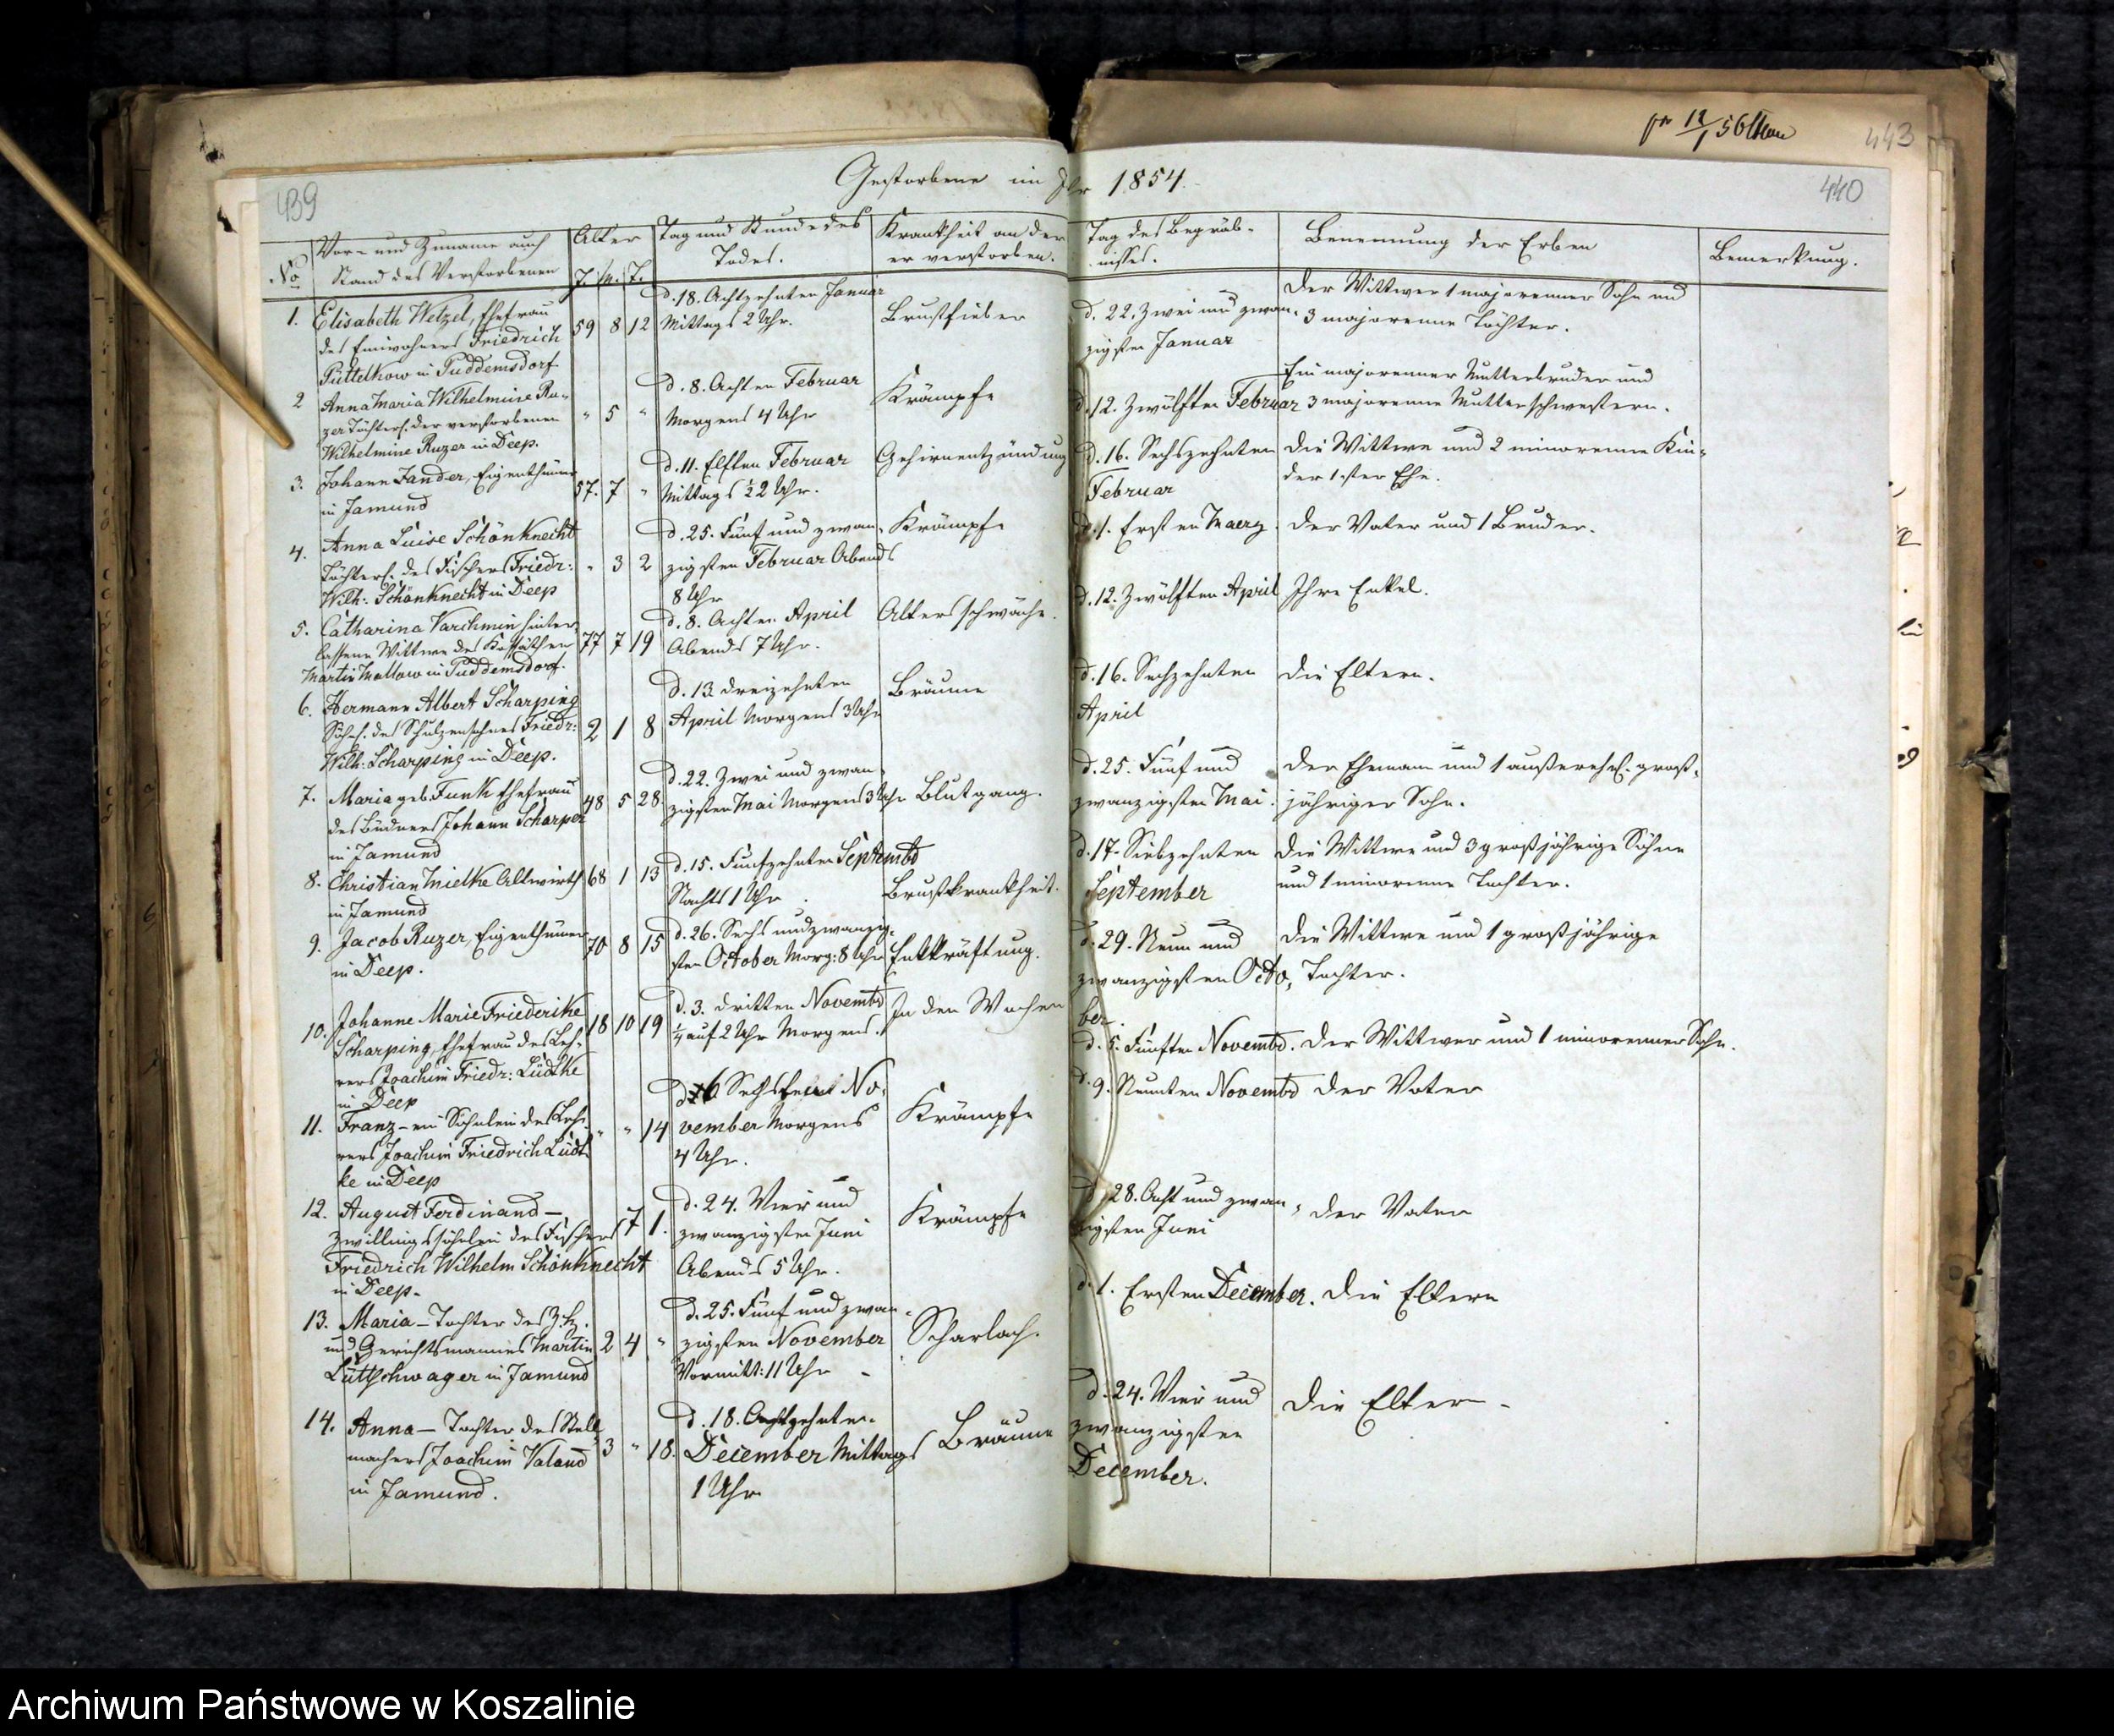 443
439
Gestorbene im Jhr 1854.
440
No
Vor- und Zuname auch
Stand des Verstorbenen
Alter
J. M. T.
Tag und Stunde des
Todes.
Krankheit an der
er verstorben.
Tag des Begräb-
nisses.
Benennung der Erben
Bemerkung.
1.
Elisabeth Wetzel, Ehefrau
des Einwohners Friedrich
Püttelkow in Puddemsdorf
59 8 12
d. 18. Achtzehnten Januar
Mittags 2 Uhr.
Brustfieber
d. 22. Zwei und zwan-
zigsten Januar
Der Wittwer 1 majorenner Sohn und
3 majorenne Töchter.
2
Anna Maria Wilhelmine Ru-
zer Töchterl. der verstorbenen
Wilhelmine Ruzer in Deep.
" 5 "
d. 8. Achten Februar
Morgens 4 Uhr
Krämpfe
d. 12. Zwölften Februar
Ein majorenner Mutterbruder und
3 majorenne Mutterschwestern.
3.
Johann Zander, Eigenthümer
in Jamund
57. 7 "
d. 11. Elften Februar
Mittags ½2 Uhr.
Gehirnentzündung
d. 16. Sechszehnten
Februar
Die Wittwe und 2 minorenne Kin-
der 1ster Ehe.
4.
Anna Luise Schönknecht
Töchterl. des Fischers Friedr:
Wilh: Schönknecht in Deep
" 3 2
d. 25. Fünf und zwan-
zigsten Februar Abends
8 Uhr
Krämpfe
d. 1. Ersten Maerz.
Der Vater und 1 Bruder.
5.
Catharina Varchmin hinter
lassene Wittwe des Kossäthen
Martin Mallow in Puddemsdorf.
77 7 19
d. 8. Achten April
Abends 7 Uhr.
Altersschwäche.
d. 12. Zwölften April
Ihre Enkel.
6.
Hermann Albert Scharping
Söhnl. des Schulzensohnes Friedr:
Wilh: Scharping in Deep.
2 1 8
d. 13 dreizehnten
April Morgens 3 Uhr
Bräune
d. 16. Sechzehnten
April
Die Eltern.
7.
Maria geb. Funk Ehefrau
des Büdners Johann Scharper
in Jamund
48 5 28.
d. 22. Zwei und zwan-
zigsten Mai Morgens 3 Uhr
Blutgang.
d. 25. Fünf und
zwanzigsten Mai.
Der Ehemann und 1 außerehel. groß-
jähriger Sohn.
8.
Christian Mielke Altwirth
in Jamund
68 1 13
d. 15. Funfzehnten Septembr
Nachts 1 Uhr
Brustkrankheit.
d. 17. Siebzehnten
September
Die Wittwe und 3 großjährige Söhne
und 1 minorenne Tochter.
9.
Jacob Ruzer, Eigenthümer
in Deep.
70 8 15
d. 26. Sechs und zwanzig-
sten October Morg: 8 Uhr
Entkräftung.
d. 29. Neun und
zwanzigsten Octo-
ber.
Die Wittwe und 1 großjährige
Tochter.
10.
Johanne Marie Friederike
Scharping, Ehefrau des Leh-
rers Joachim Friedr: Lüdtke
in Deep
18 10 19
d. 3. dritten Novembr
¼ auf 2 Uhr Morgens.
In den Wochen
d. 5. Fünften Novembr.
Der Wittwer und 1 minorenner Sohn.
11.
Franz - ein Söhnlein des Leh-
rers Joachim Friedrich Lüdt-
ke in Deep
" " 14
d. 6 Sechsten No-
vember Morgens
4 Uhr.
Krämpfe
d. 9. Neunten Novembr
Der Vater
12.
August Ferdinand -
Zwillingssöhnlein des Fischers
Friedrich Wilhelm Schönknecht
in Deep-
7 1.
d. 24. Vier und
zwanzigsten Juni
Abends 5 Uhr.
Krämpfe
d. 28. Acht und zwan-
zigsten Juni
Der Vater
13.
Maria - Tochter des
und Gerichtsmannes Martin
Lüttschwager in Jamund
2 4 "
d. 25. Fünf und zwan-
zigsten November
Vormitt: 11 Uhr -
Scharlach.
d. 1. Ersten December.
Die Eltern
14.
Anna - Tochter des Stell-
machers Joachim Valand
in Jamund.
3 " 18.
d. 18. Achtzehnten
December Mittags
1 Uhr
Bräune
d. 24. Vier und
zwanzigsten
December.
Die Eltern -
Archiwum Państwowe w Koszalinie